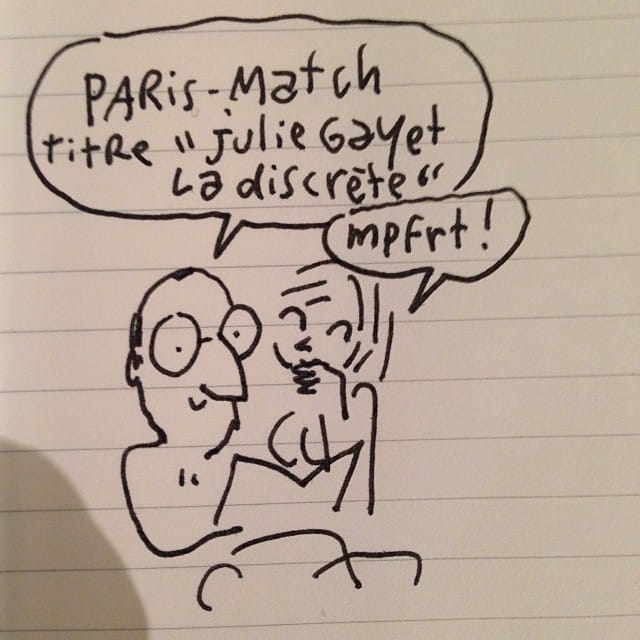 PARis-Match
titRe "Julie Gayet
La discrète"
mpfrt!